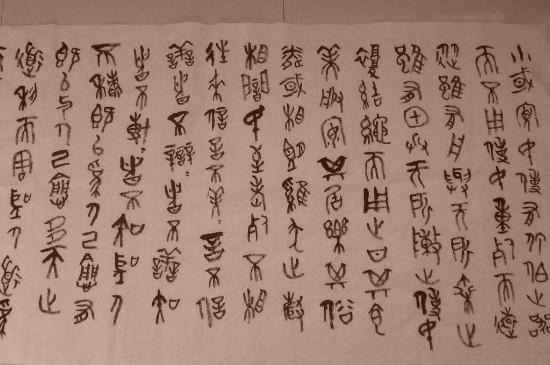 小或寡民使有什伯之器
而不用使民重死而遠
徙雖有舟輿無所乘之
雖有甲兵無所陳之使民
復結繩而用之甘其食
美服安其居樂其俗
鄰或相望雞犬之聲
相聞民至老死不相
往來信言不美言不信
善者不辯者不善知
者不博者不知聖人
不積既以為人己愈有
既以與人己愈多天之